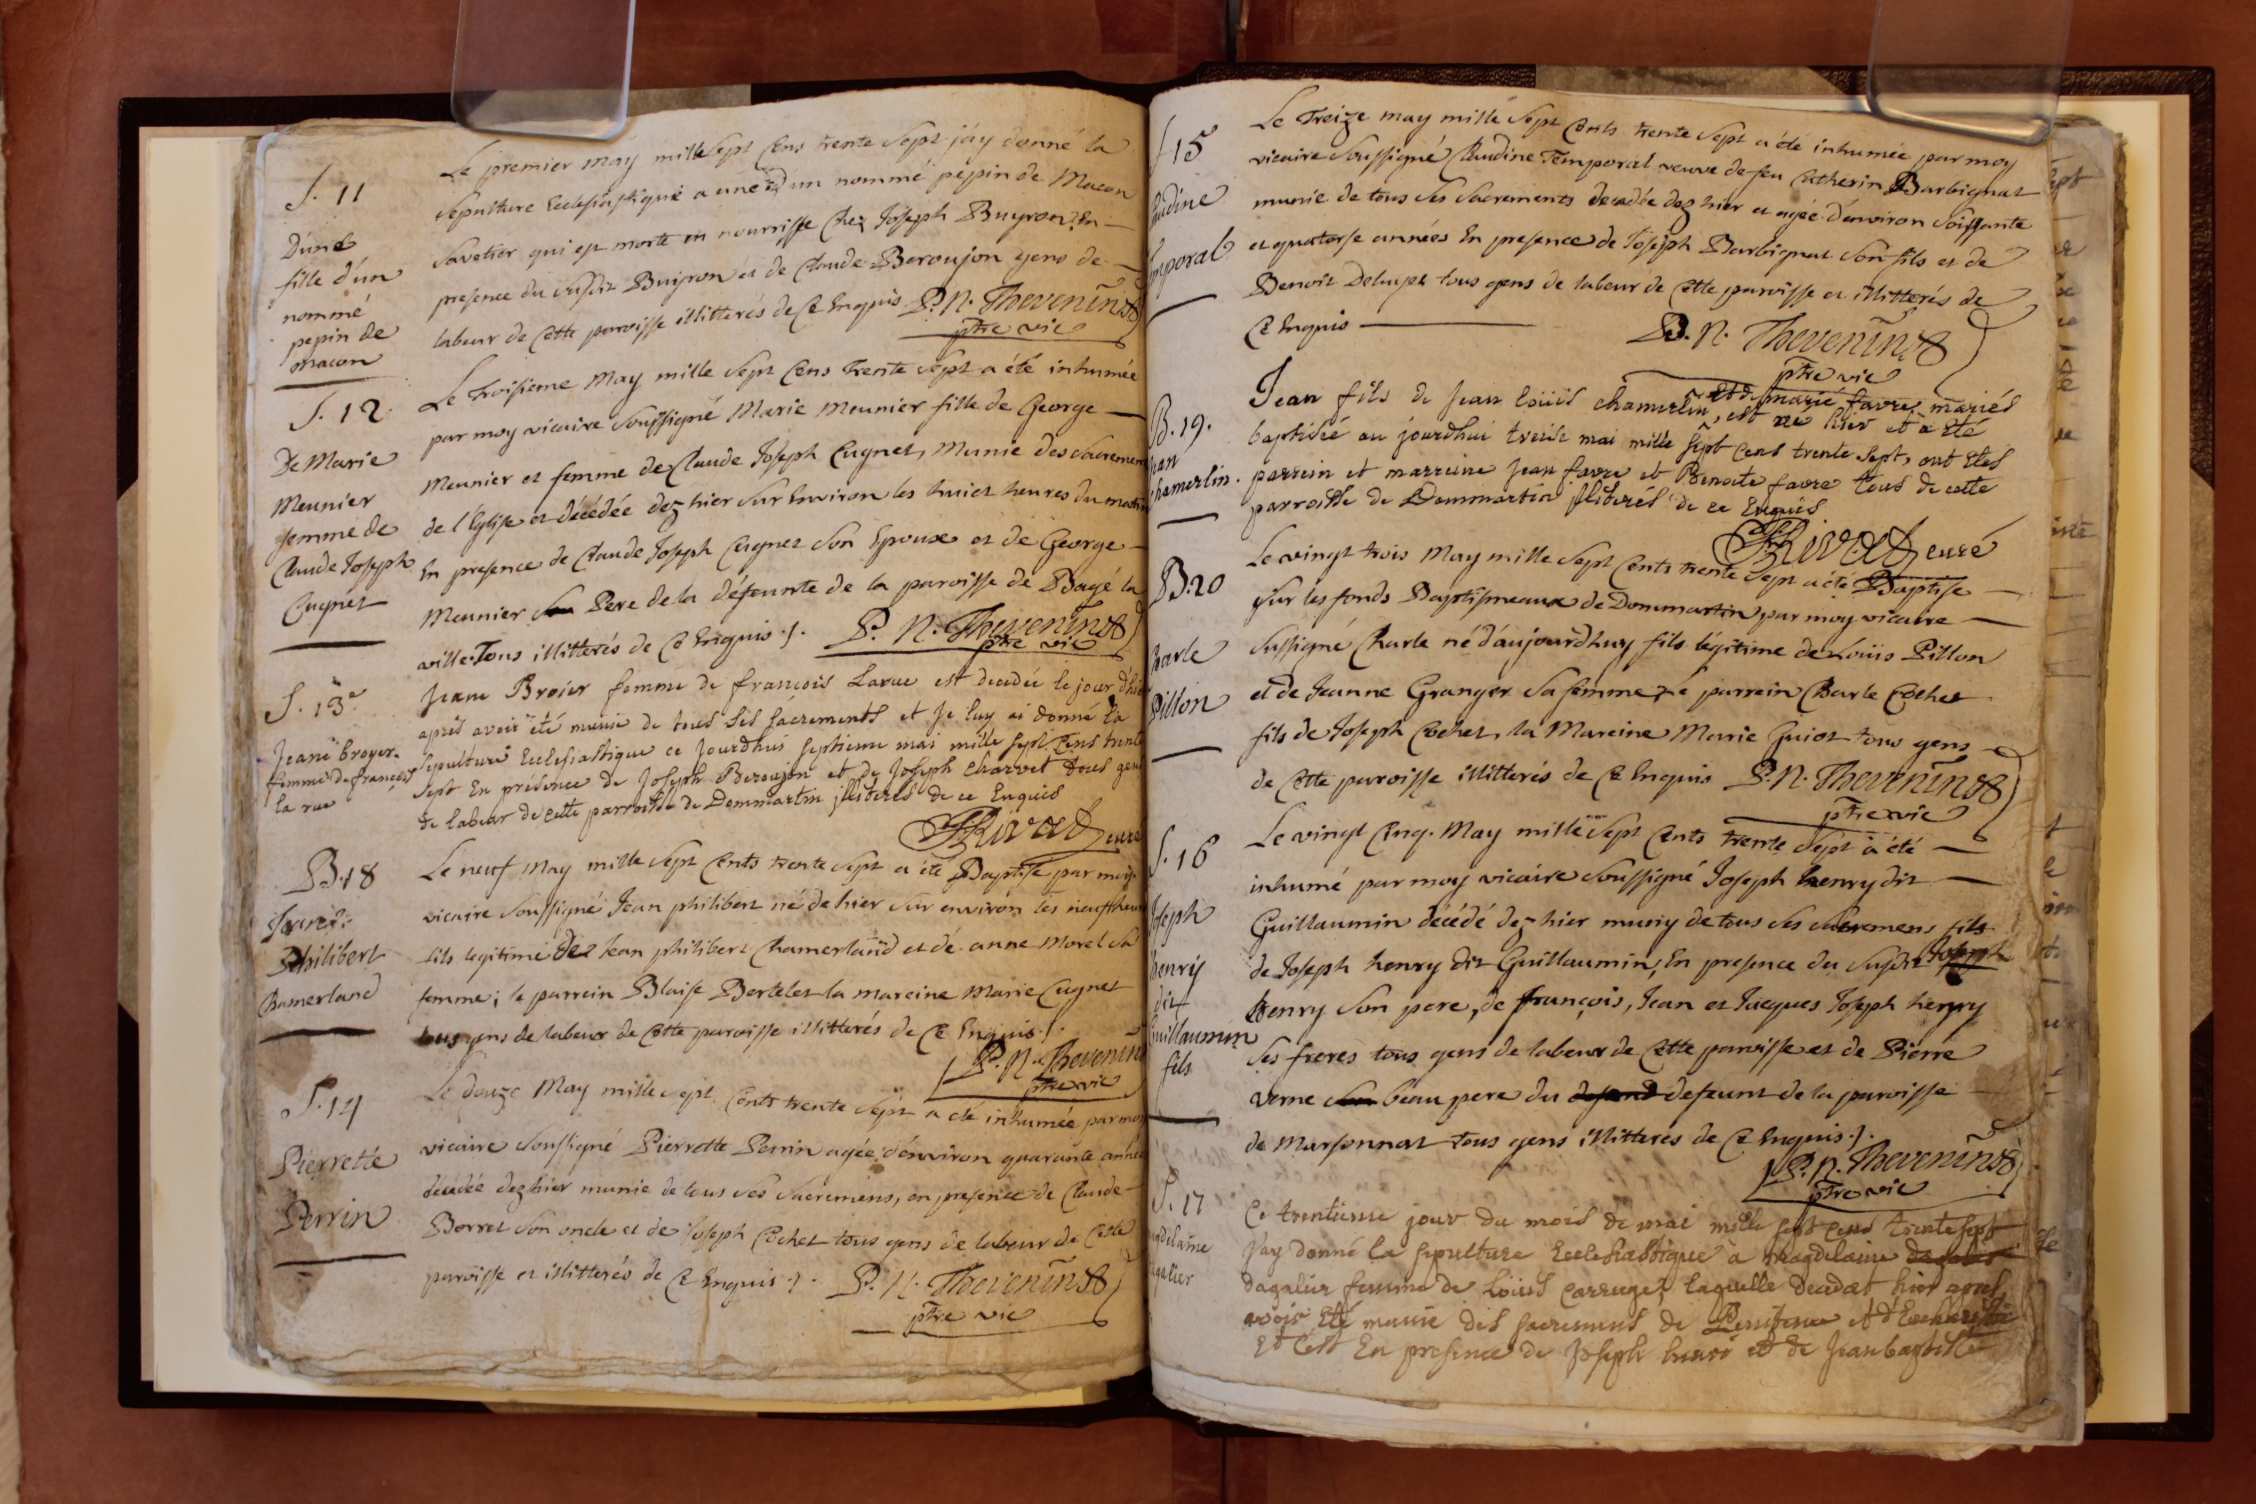 S. 11
D'une
fille d'un
nommé
pepin de
macon
Le premier may mille sept cens trente sept j'ay donné la
sepulture Ecclesiastique a une d'un nommé pepin de Macon
savetier qui est morte en nourrisse chez Joseph Buyron, En
presence du susdit Buyron et de Claude Beroujon gens de
labeur de cette paroisse illitterés de ce Enquis P. N. Thevenin
ptre vic
S. 12
De Marie
Meunier
femme de
Claude Joseph
Cugnet
Le troisieme May mille sept cens trente sept a été inhumée
par moy vicaire soussigné Marie Meunier fille de George
Meunier et femme de Claude Joseph Cugnet, Munie des sacremens
de l'Eglise et décédée dez hier sur Environ les huict heures du matin
En presence de Claude Joseph Cugnet son Epoux et de George
Meunier Pere de la défeunte de la paroisse de Bagé la
ville. Tous illitterés de ce Enquis ./.
P. N. Thevenin
ptre vic
S. 13
Jeane broyer
femme de françois
la rue
Jeane Broier femme de françois Larue est decedée le jour d'hier
apres avoir été munie de tous ses sacrements et Je luy ai donné la
sepulture Ecclesiastique ce jourdhui septieme mai mille sept cens trente
sept En présence de Joseph Beroujon et de Joseph charvet tous gens
de labeur de cette parroisse de Dommartin illiterés de ce Enquis
Rivat curé
B. 18
Jean
Philibert
Chamerland
Le neuf May mille sept cents trente sept a été Baptisé par moy
vicaire soussigné Jean philibert né de hier sur environ les neuf heures
fils legitime de Jean philibert Chamerland et de anne Morel sa
femme; le parrein Blaise Bertelet la mareine Marie Cugnet
tous gens de labeur de cette paroisse illitterés de ce Enquis ./.
P. N. Thevenin
ptre vic
S. 14
Pierrette
Perrin
Le douze May mille sept cents trente sept a été inhumée par moy
vicaire soussigné Pierrette Perrin agée d'environ quarante années
décédée dez hier munie de tous ses sacremens, en presence de Claude
Borret son oncle et de Joseph Cochet tous gens de labeur de cette
paroisse et illitterés de ce Enquis ./.
P. N. Thevenin
ptre vic
15
Le Treize may mille sept cents trente sept a été inhumée par moy
vicaire soussigné Claudine Temporal veuve de feu Catherin Barbignat
munie de tous ses sacrements decedée dez hier et agée d'environ soissante
et quatorse années En presence de Joseph Barbignat son fils et de
Benoit tous gens de labeur de cette paroisse et illitterés de
ce Enquis
P. N. Thevenin
ptre vic
B. 19.
chamerlin.
Jean fils de Jean loüis chamerlin et de marie favre mariés
, est né hier et a été
baptisé au jourdhui treize mai mille sept cens trente sept, ont etes
parrein et marreine Jean favre et Benoite favre tous de cette
parroisse de Dommartin illiterés de ce Enquis
Rivat curé
B. 20
Pillon
Le vingt trois May mille sept cents trente sept a été Baptise
sur les fonds Baptismeaux de Dommartin par moy vicaire
sussigné Charle né d'aujourdhuy fils légitime de Loüis Pillon
et de Jeanne Granger sa femme Le parrein Charle Cochet
fils de Joseph Cochet, la Mareine Marie Guiot tous gens
de cette paroisse illitterés de ce Enquis P. N. Thevenin
ptre vic
S. 16
Joseph
henry
dit
Guillaumin
fils
Le vingt Cinq. May mille sept cents trente sept a été
inhumé par moy vicaire soussigné Joseph henry dit
Guillaumin décédé dez hier muny de tous ses sacremens fils
de Joseph henry dit Guillaumin, En presence du susdit Joseph
henry son pere, de françois, Jean et Jacques Joseph henry
ses freres tous gens de labeur de cette paroisse et de Pierre
verne beau pere du defeunt de la paroisse
de Marsonnat tous gens illitterés de ce Enquis ./.
P. N. Thevenin
ptre vic
S. 17
Ce trentieme jour du mois de mai mille sept cens trente sept
J'ay donné la sepulture Ecclesiastique a magdelaine
dagalier femme de Loüis laquelle decedat hier apres
avoir été munie des sacremens de Penitence et d'Eucharistie
Et c'est En presence de Joseph et de Jean baptiste